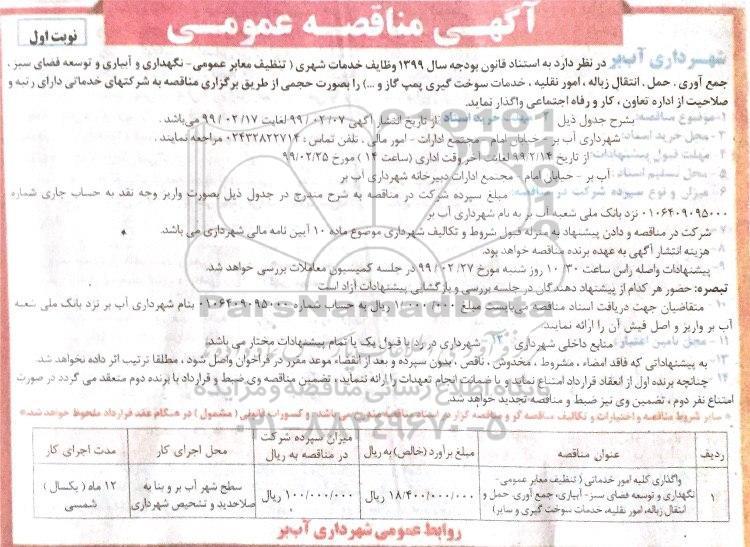 آگهی مناقصه عمومی
نوبت اول
شهرداری آب‌بر در نظر دارد به استناد قانون بودجه سال ۱۳۹۹ وظایف خدمات شهری ( تنظیف معابر عمومی- نگهداری و آبیاری و توسعه فضای سبز ،
جمع آوری ، حمل ، انتقال زباله ، امور نقلیه ، خدمات سوخت گیری پمپ گاز و ...) را بصورت حجمی از طریق برگزاری مناقصه به شرکتهای خدماتی دارای رتبه و
صلاحیت از اداره تعاون ، کار و رفاه اجتماعی واگذار نماید.
۱- موضوع مناقصه: بشرح جدول ذیل ۲- مهلت خرید اسناد : از تاریخ انتشار آگهی ۹۹/۰۲/۰۷ لغایت ۹۹/۰۲/۱۷ می‌باشد .
۳- محل خرید اسناد: شهرداری آب بر - خیابان امام - مجتمع ادارات - امور مالی . تلفن تماس : ۰۲۴۳۲۸۲۲۷۱۴ مراجعه نمایند .
۴- مهلت قبول پیشنهادات: از تاریخ ۹۹/۲/۱۴ لغایت آخر وقت اداری (ساعت ۱۴ ) مورخ ۹۹/۰۲/۲۵
۵- محل تسلیم اسناد: آب بر - خیابان امام - مجتمع ادارات دبیرخانه شهرداری آب بر
۶- میزان و نوع سپرده شرکت در مناقصه: مبلغ سپرده شرکت در مناقصه به شرح مندرج در جدول ذیل بصورت واریز وجه نقد به حساب جاری شماره
۰۱۰۶۴۰۹۰۹۵۰۰۰ نزد بانک ملی شعبه آب بر به نام شهرداری آب بر
۷- شرکت در مناقصه و دادن پیشنهاد به منزله قبول شروط و تکالیف شهرداری موضوع ماده ۱۰ آیین نامه مالی شهرداری می باشد.
۸- هزینه انتشار آگهی به عهده برنده مناقصه خواهد بود.
۹- پیشنهادات واصله راس ساعت ۱۰:۳۰ روز شنبه مورخ ۹۹/۰۲/۲۷ در جلسه کمیسیون معاملات بررسی خواهد شد.
تبصره: حضور هر کدام از پیشنهاد دهندگان در جلسه بررسی و بازگشایی پیشنهادات آزاد است
۱۰- متقاضیان جهت دریافت اسناد مناقصه می‌بایست مبلغ ۱/۰۰۰/۰۰۰ ریال به حساب شماره ۰۱۰۶۴۰۹۰۹۵۰۰۰ بنام شهرداری آب بر نزد بانک ملی شعبه
آب بر واریز و اصل فیش آن را ارائه نمایند.
۱۱- محل تامین اعتبار: منابع داخلی شهرداری ۱۲- شهرداری در رد یا قبول یک یا تمام پیشنهادات مختار می باشد.
۱۳- به پیشنهاداتی که فاقد امضاء ، مشروط ، مخدوش ، ناقص ، بدون سپرده و بعد از انقضاء موعد مقرر در فراخوان واصل شود ، مطلقا ترتیب اثر داده نخواهد شد.
۱۴- چنانچه برنده اول از انعقاد قرارداد امتناع نماید و یا ضمانت انجام تعهدات را ارائه ننماید ، تضمین مناقصه وی ضبط و قرارداد با برنده دوم منعقد می گردد در صورت
امتناع نفر دوم ، تضمین وی نیز ضبط و مناقصه تجدید خواهد شد.
سایر شروط مناقصه و اختیارات و تکالیف مناقصه گر و مناقصه گزار در اسناد مناقصه مندرج می باشد و کسورات قانونی ( مشمول ) در هنگام عقد قرارداد ملحوظ خواهد شد
ردیف | عنوان مناقصه | مبلغ برآورد (خالص) به ریال | میزان سپرده شرکت در مناقصه به ریال | محل اجرای کار | مدت اجرای کار
۱ | واگذاری کلیه امور خدماتی ( تنظیف معابر عمومی- نگهداری و توسعه فضای سبز - آبیاری، جمع آوری، حمل و انتقال زباله، امور نقلیه، خدمات سوخت گیری و سایر) | ۱۸/۴۰۰/۰۰۰/۰۰۰ ریال | ۱۰۰/۰۰۰/۰۰۰ ریال | سطح شهر آب بر و بنا به صلاحدید و تشخیص شهرداری | ۱۲ ماه ( یکسال ) شمسی
روابط عمومی شهرداری آب‌بر
ParsNamadData
پایگاه اطلاع رسانی مناقصه و مزایده
۰۲۱-۸۸۳۴۹۶۷۰-۵